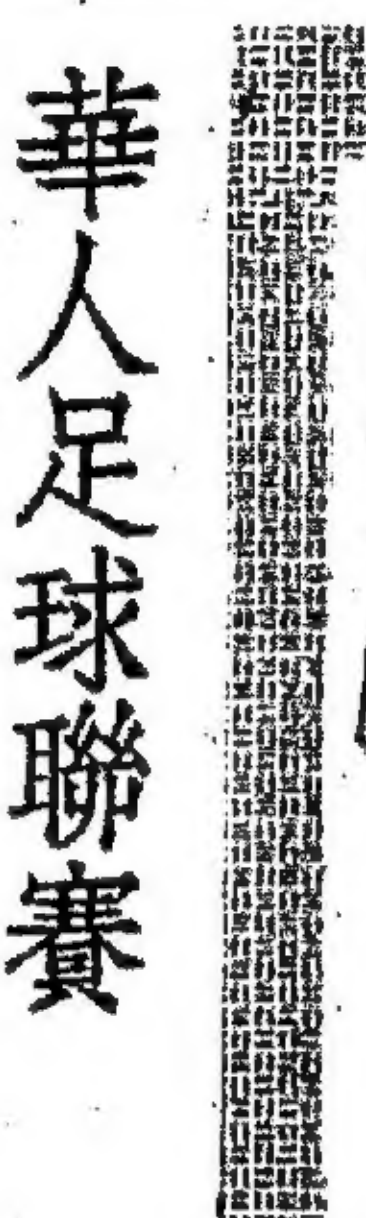 華人足球聯賽